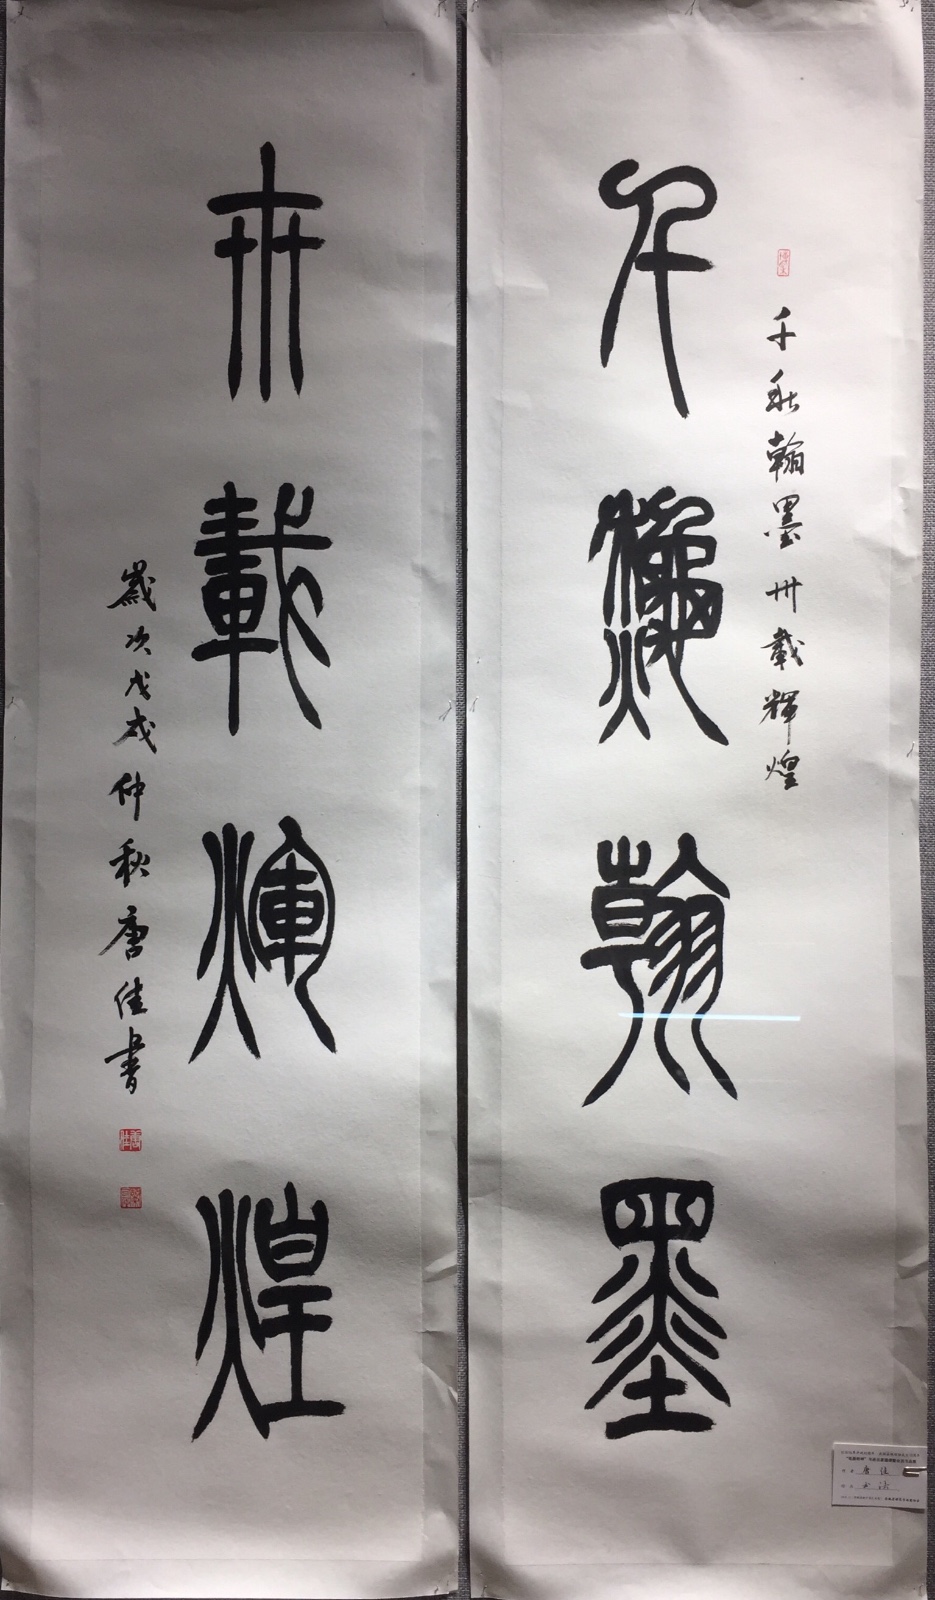 千秋翰墨
卅載煇煌
千秋翰墨卅載輝煌
歲次戊戌仲秋唐佳書
唐佳
书法